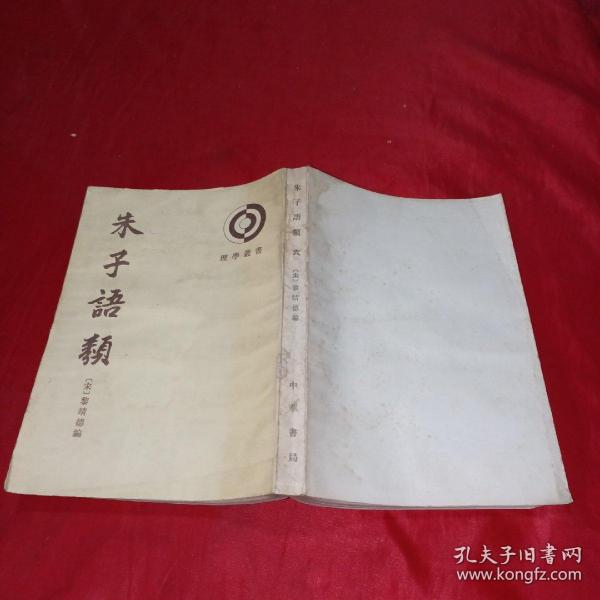 朱子語類
〔宋〕黎靖德編
理學叢書
朱子語類 六 〔宋〕黎靖德編
中華書局
孔夫子旧书网
www.kongfz.com